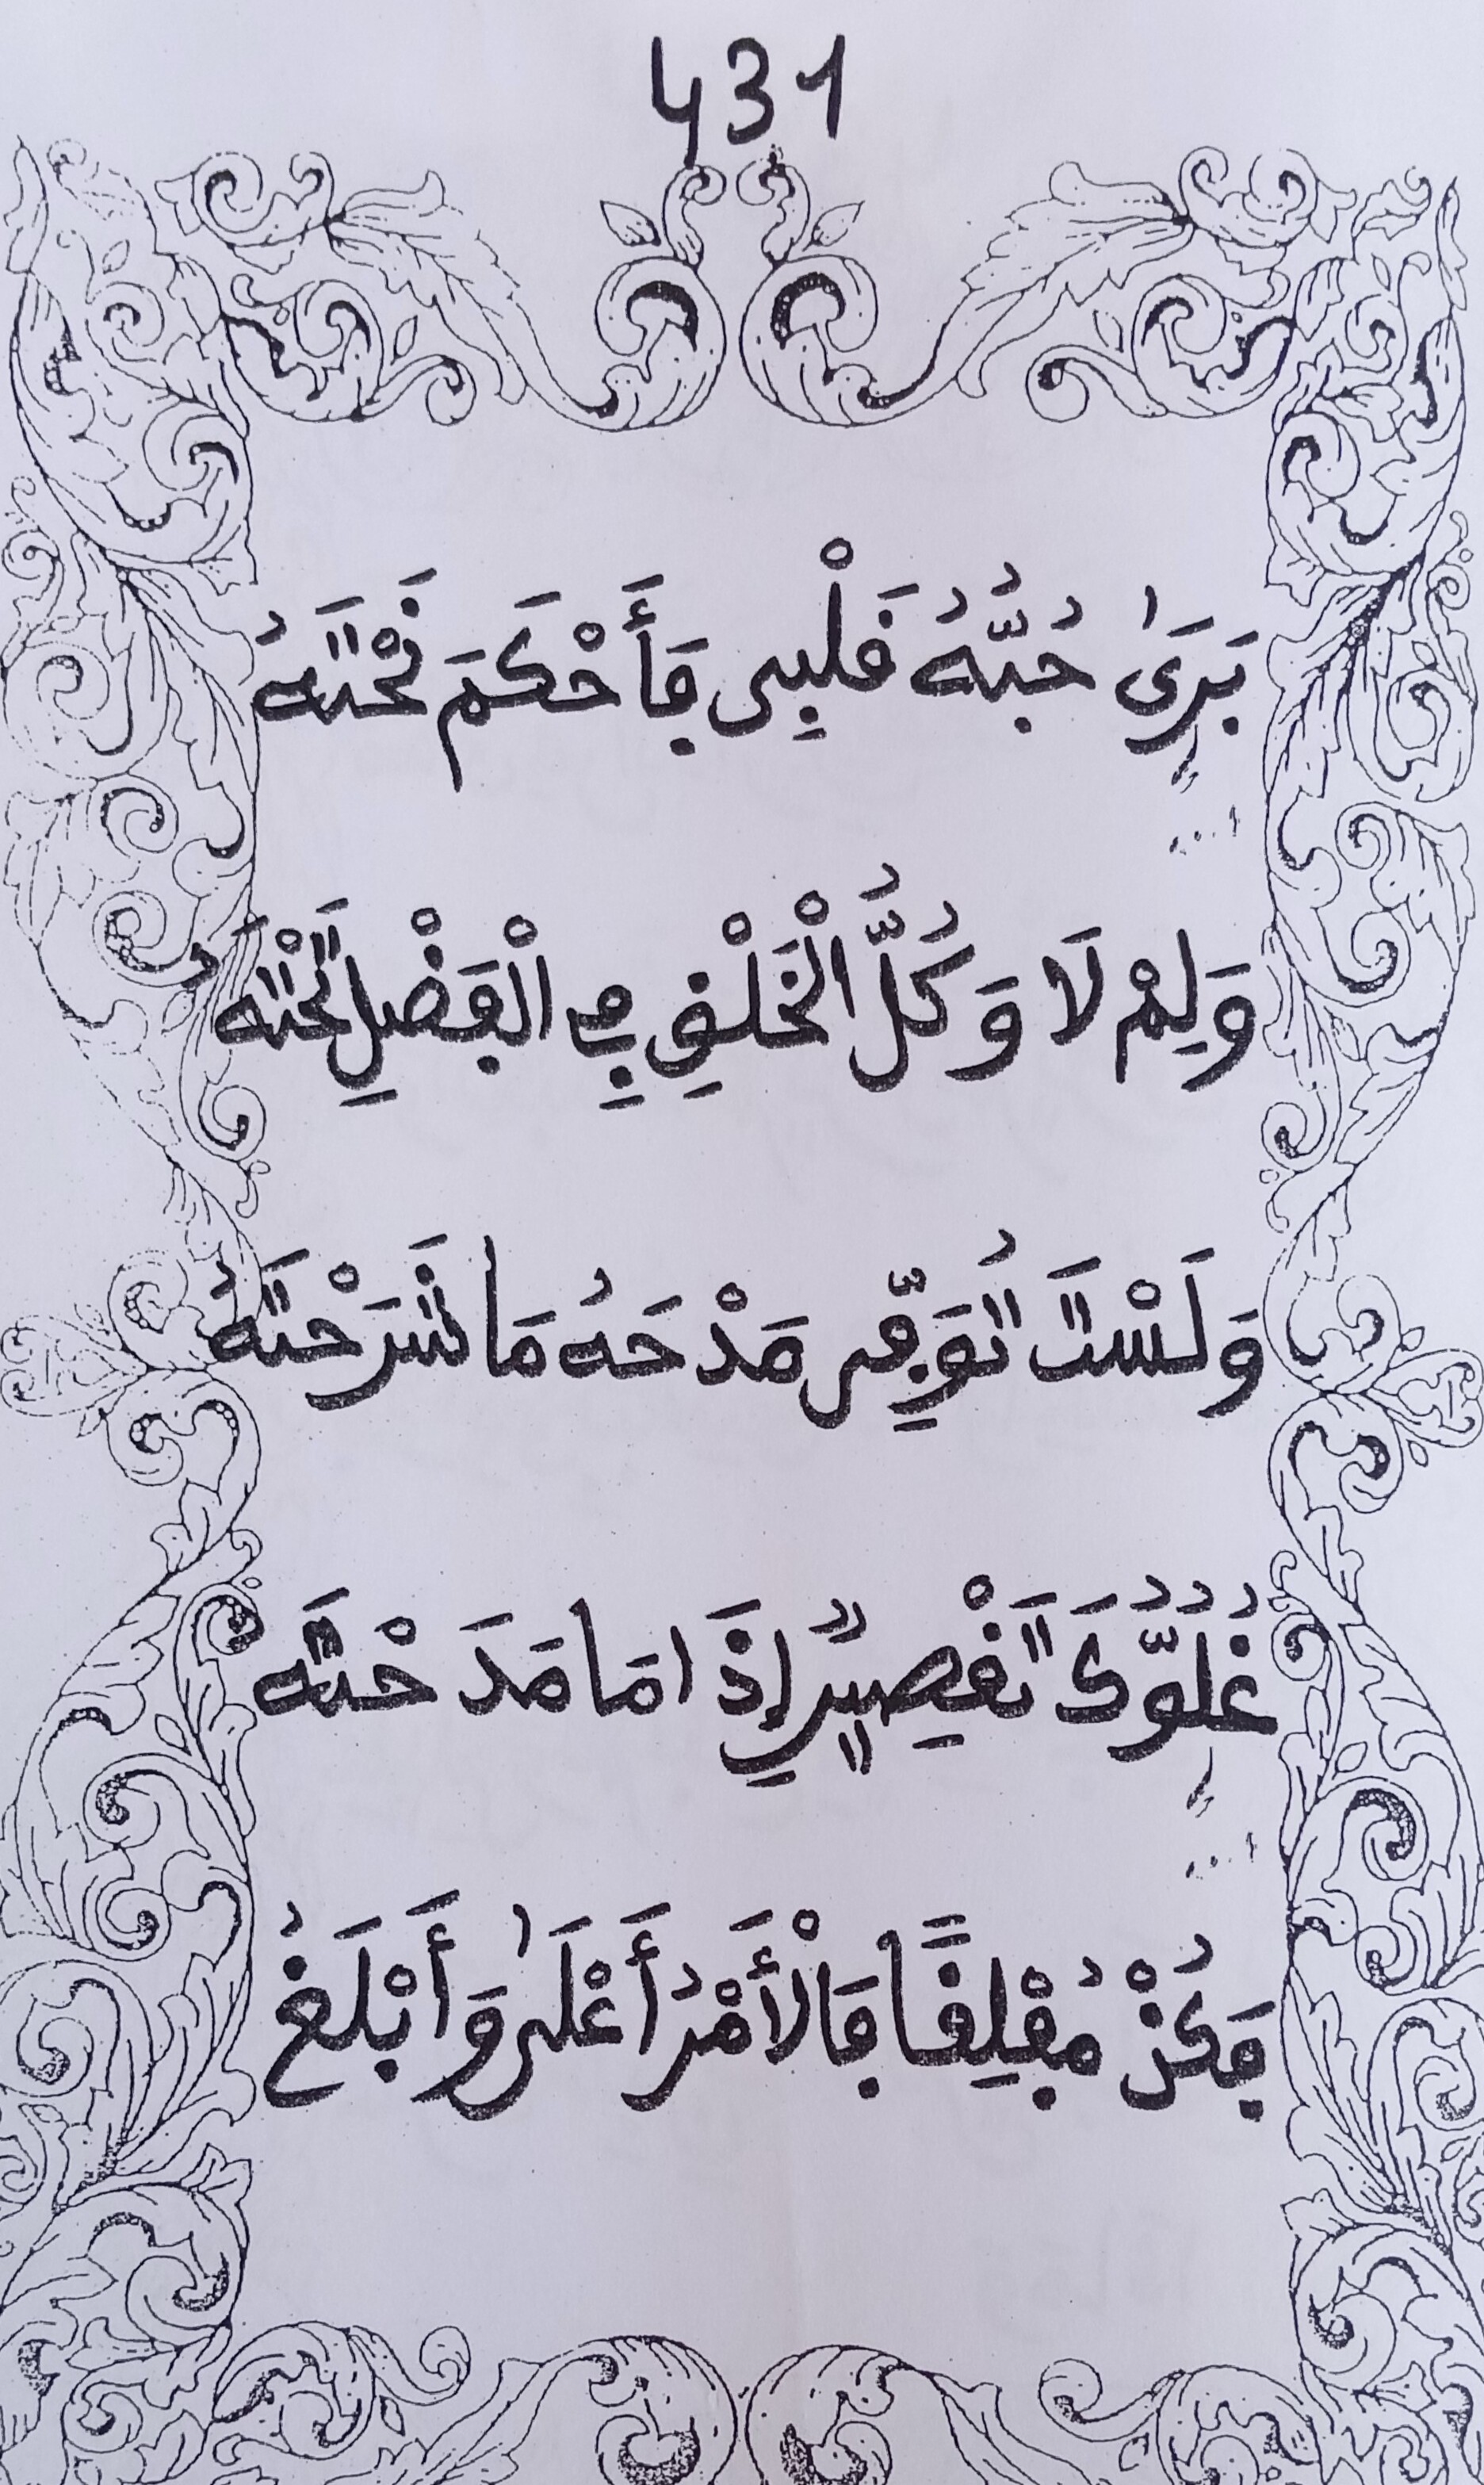 431
بَرَىٰ حُبُّهُ قَلْبِي فَأَحْكَمَ نَحْتَهُ
وَلِمْ لَا وَكُلُّ الْخَلْقِ فِي الْفَضْلِ تَحْتَهُ
وَلَسْتَ تُوَفِّي مَدْحَهُ مَا شَرَحْتَهُ
غُلُوُّكَ تَقْصِيرٌ إِذَا مَا مَدَحْتَهُ
فَكُنْ مُفْلِقًا فَالْأَمْرُ أَعْلَىٰ وَأَبْلَغُ